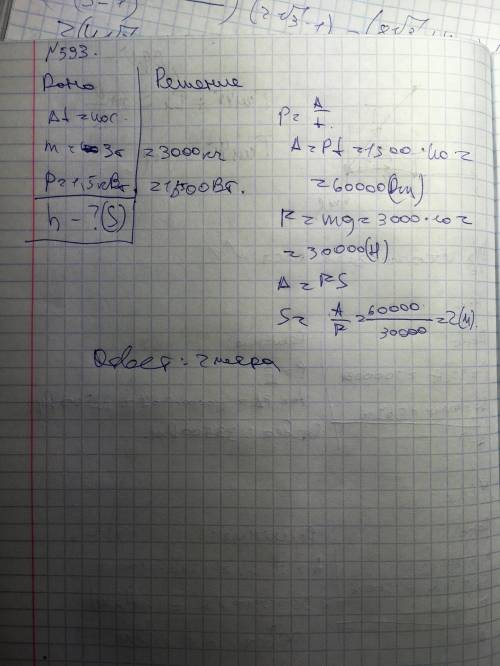 N593.
Дано Решение
Δt = 40с.
m = 3т = 3000кг
P = 1,5кВт. = 1500Вт.
h - ? (S)
P = A/t.
A = Pt = 1500 · 40 =
= 60000(Дж)
F = mg = 3000 · 10 =
= 30000(Н)
A = FS
S = A/F = 60000/30000 = 2(м).
Ответ: 2 метра